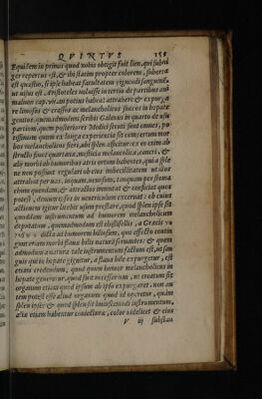 QVINTVS 155
Equidem in primis quod nobis obtigit fuit lien, qui subni
ger repertus est, & ibi statim propter colorem, suborta
est quæstio, si ipse habeat facultatem gignendi sanguinẽ,
ut uisus est Aristoteles uoluisse in tertio de partibus ani-
malium cap. uii. an potius habeat attrahere & expurga-
re limosos & crassos ac melancholicos succos in hepate
genitos. quemadmodum scribit Galenus in quarto de usu
partium, quem posteriores Medici secuti sunt omnes, po-
tissimum quum ex longa experientia sit compertum mor
bos melancholicos fieri, ubi splen afficitur: ex eo enim ob
structo fiunt quartana, mœstitia melancholica, cancri, &
alii morbi ab humoribus atris ortum habentes, qui a sple
ne non possunt regulari ob eius imbecillitatem
attrahat per uas, inquam, uenosum, tanquam per stoma
chum quendam, & attractos immutat & conficiat quoad
potest, demum eiiciat in uentriculum excernat: ob cuius
actionem igitur laesus præter colorem, quod splen ipse sit
quoddam instrumentum ad humorem melancholicum
deputatum, quemadmodum est chistifellis, a Græcis
dicta ad humorem biliosum, quo affecto contin
gunt etiam morbi flaua bilis natura seruantes: & quem
admodum natura tale instrumentum factum est, ut san
guis qui in hepate gignitur, a flaua bile expurgetur, est
etiam credendum, quod quum humor melancholicus in
hepate generetur, quod sit necessarium, ut creatum sit
organum etiam quod ipsum ab ipso expurget. non au
tem potest esse aliud organum quod id operetur, quàm
splen: igitur & quod splen sit huiusmodi instrumentum,
alia etiam habentur coniectura, color uidelicet & eius
V iij substan